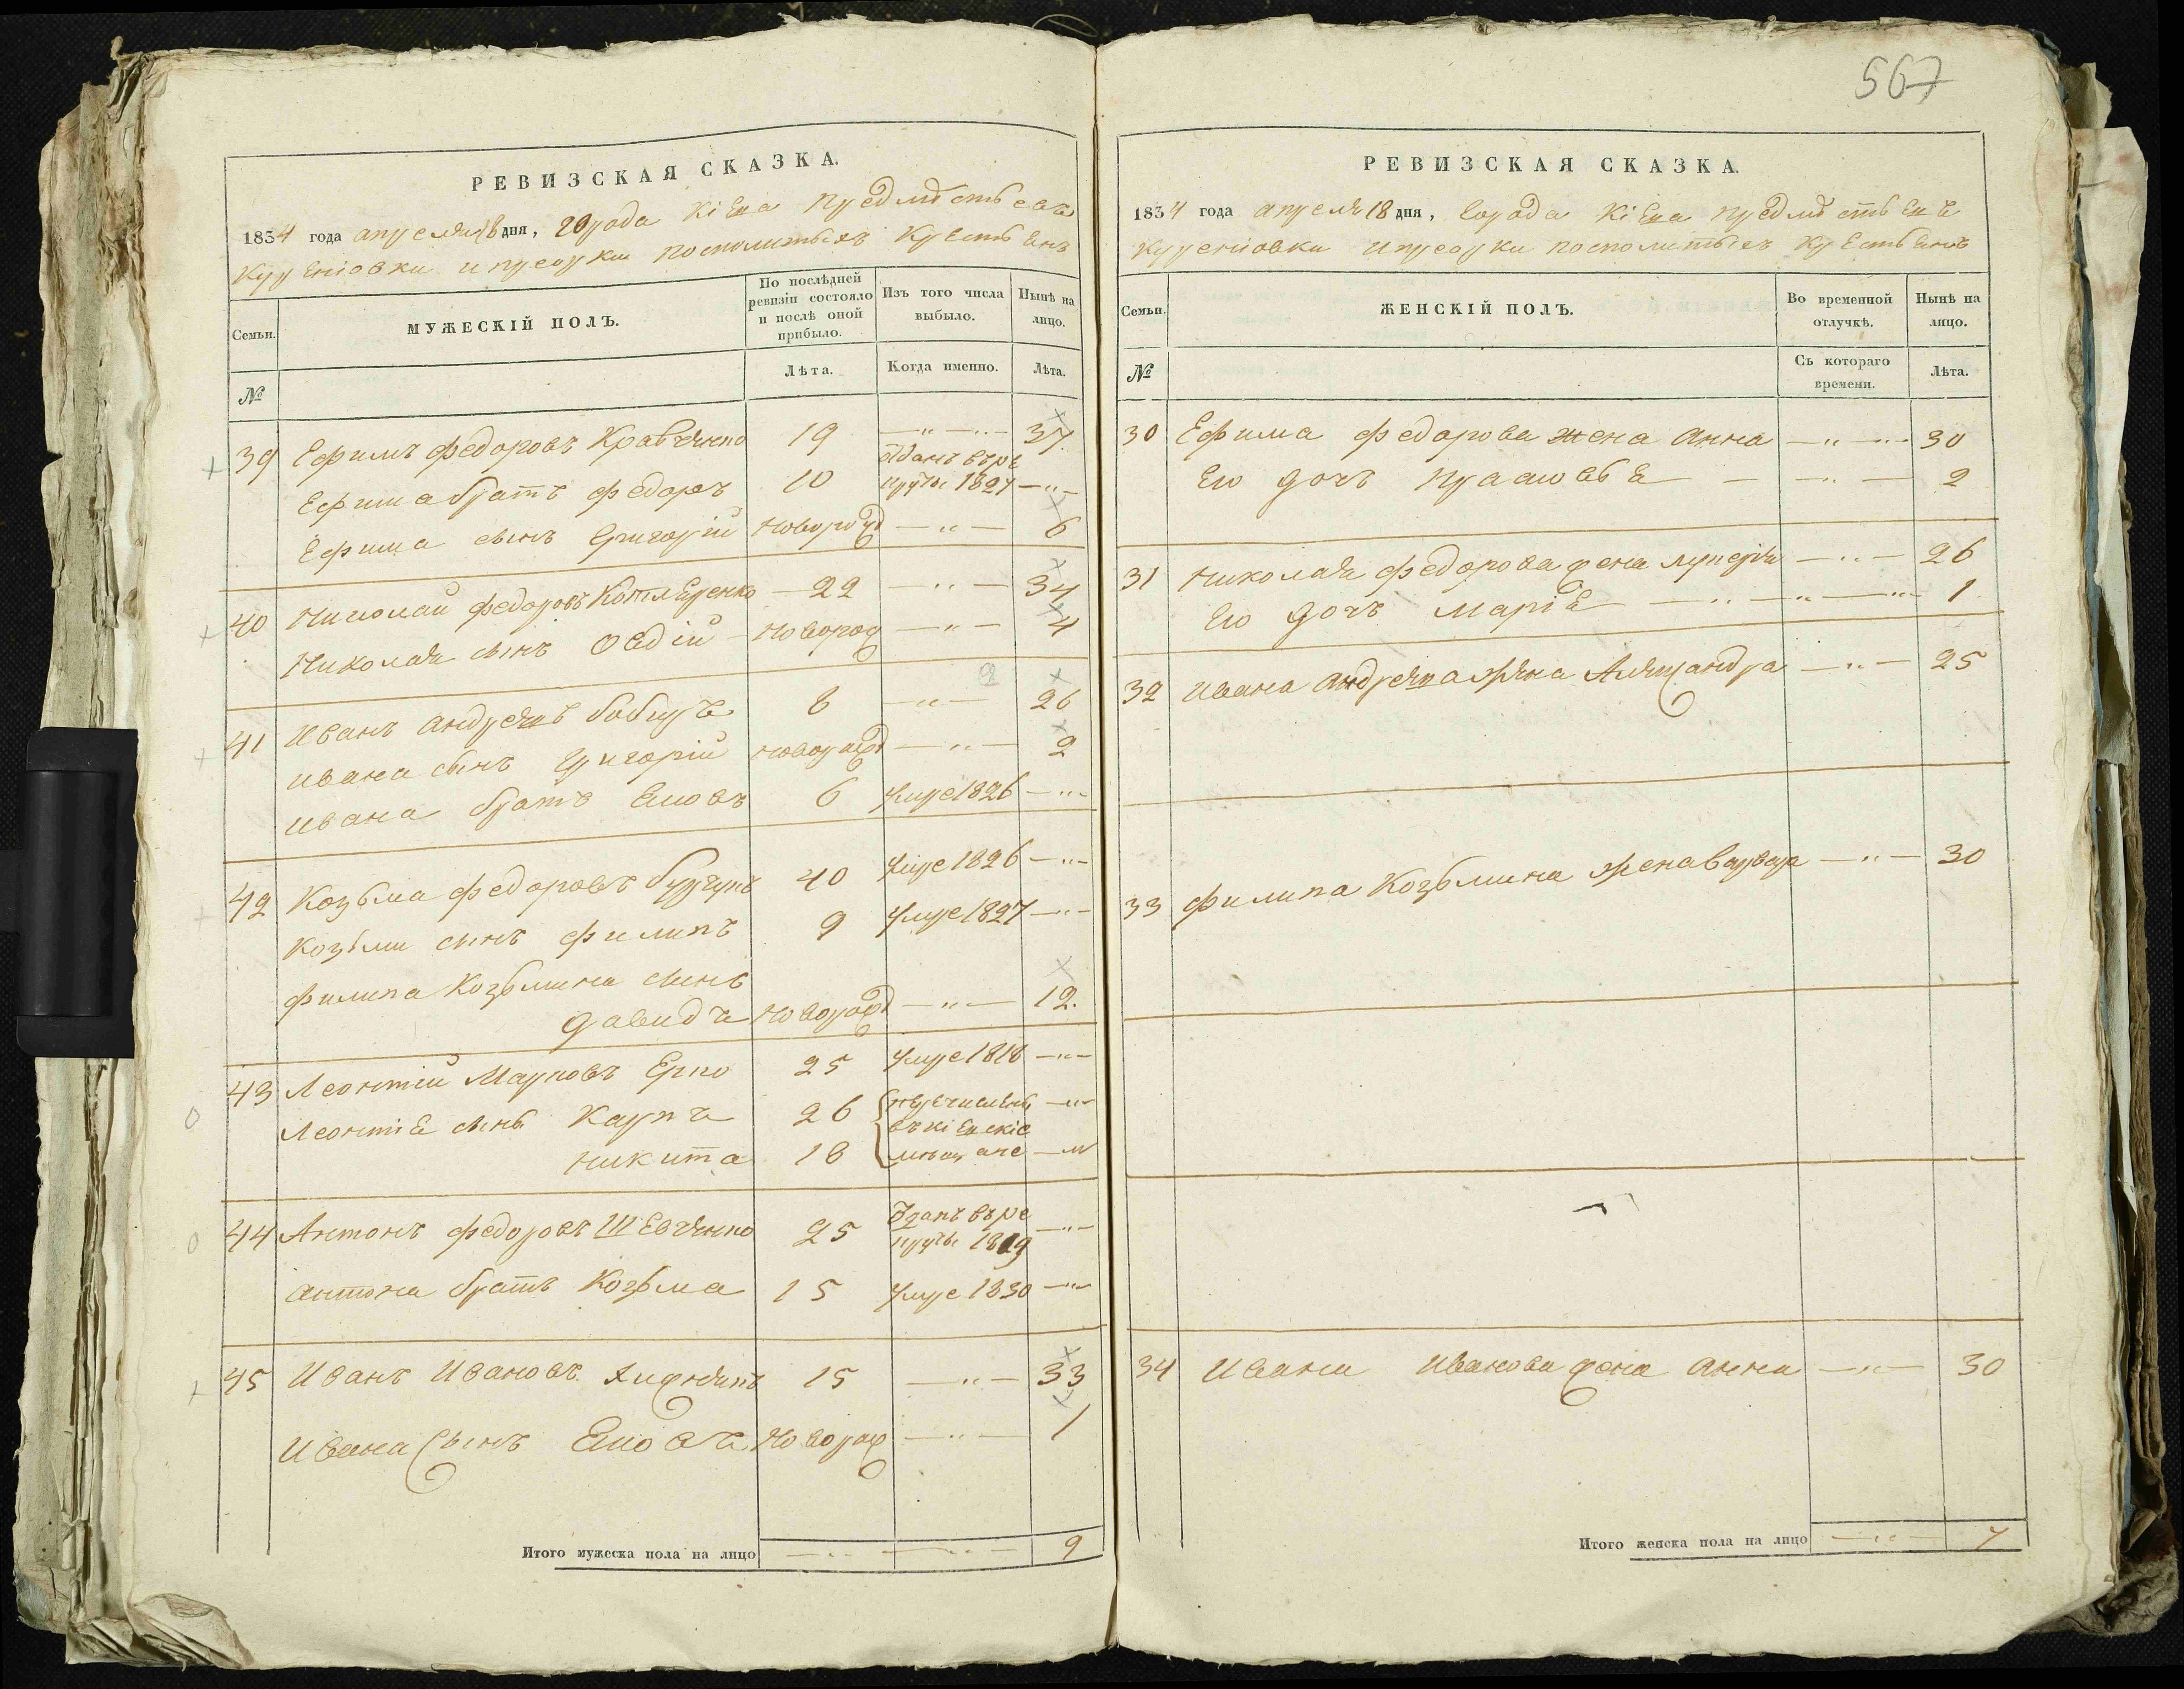 567
РЕВИЗСКАЯ СКАЗКА.
1834 года апреля 18 дня, города Кіева предмѣстьевъ
Куреніовки и преорки посполитыхъ Крестьянъ
Семьи.
МУЖЕСКІЙ ПОЛЪ.
По послѣдней ревизіи состояло и послѣ оной прибыло.
Изъ того числа выбыло.
Нынѣ на лицо.
№
Лѣта.
Когда именно.
Лѣта.
39 Ефимъ Федоровъ Кравченко 19 —„— 37
Ефима братъ Федоръ 10 отданъ въ рекруты 1827 —„—
Ефима сынъ Григорій новорожд —„— 6
40 Николай Федоровъ Котляренко 22 —„— 34
Николая сынъ Овдій новорож —„— 4
41 Иванъ Андреевъ Бобыръ 8 —„— 26
Ивана сынъ Григорій новорожд —„— 2
Ивана братъ Яковъ 6 умре 1826 —„—
42 Козьма Федоровъ 40 умре 1826 —„—
Козьми сынъ Филипъ 9 умре 1827 —„—
Филипа Козьмина сынъ
Давидъ новорожд —„— 12.
43 Леонтій Марковъ 25 умре 1818 —„—
Леонтія сынъ Карпъ 26 перечислены —„—
въ кіевскіе
Никита 18 мещане —„—
44 Антонъ Федоровъ Шевченко 25 въ рекруты 1819 —„—
Антона братъ Козьма 15 умре 1830 —„—
45 Иванъ Ивановъ 15 —„— 33
Ивана сынъ Яковъ новорож —„— 1
Итого мужеска пола на лицо —„— —„— 9
РЕВИЗСКАЯ СКАЗКА.
1834 года апреля 18 дня, города Кіева предмѣстьевъ
Куреніовки и преорки посполитыхъ Крестьянъ
Семьи.
ЖЕНСКІЙ ПОЛЪ.
Во временной отлучкѣ.
Нынѣ на лицо.
№
Съ котораго времени.
Лѣта.
30 Ефима Федорова жена Анна —„— 30
Его дочь —„— 2
31 Николая Федорова жена —„— 26
Его дочь Марія —„— 1
32 Ивана Андреева жена Александра —„— 25
33 Филипа Козьмина жена Варвара —„— 30
34 Ивана Иванова жена Анна —„— 30
Итого женска пола на лицо —„— 7